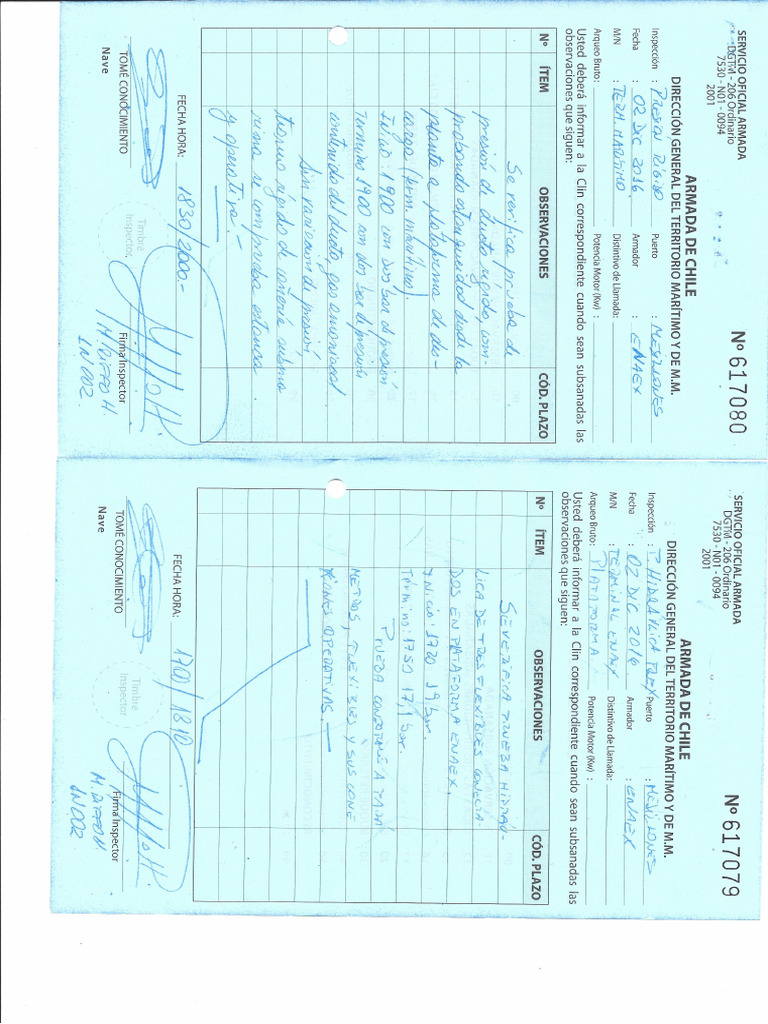 SERVICIO OFICIAL ARMADA
DGTM - 206 Ordinario
7530 - N01 - 0094
2001
Nº 617080
ARMADA DE CHILE
DIRECCIÓN GENERAL DEL TERRITORIO MARÍTIMO Y DE M.M.
Inspección : Presón Rígido Puerto : MEJILLONES
Fecha : 02 DIC 2016 Armador : ENAEX
M/N : TERM. MARÍTIMO Distintivo de Llamada:
Arqueo Bruto: Potencia Motor (Kw) :
Usted deberá informar a la Clin correspondiente cuando sean subsanadas las
observaciones que siguen:
Nº ÍTEM OBSERVACIONES CÓD. PLAZO
Se verifica prueba de
presión de ducto rígido, com-
probando estanqueidad desde la
planta a plataforma de des-
carga (term. marítimo).
Inicio: 1900 con dos bar de presión
Termino 1900 con dos bar de presión
contenido del ducto, gas amoniaco
Sin variación de presión,
tramo rígido de cañería subma
rina se comprueba estanca
y operativa.-
FECHA HORA: 1830/2000.
TOMÉ CONOCIMIENTO
Nave
Timbre
Inspector
Firma Inspector
M. RIFFO H
IN 002.
SERVICIO OFICIAL ARMADA
DGTM - 206 Ordinario
7530 - N01 - 0094
2001
Nº 617079
ARMADA DE CHILE
DIRECCIÓN GENERAL DEL TERRITORIO MARÍTIMO Y DE M.M.
Inspección : P. HIDRAULICA FLEX Puerto : MEJILLONES
Fecha : 02 DIC 2016 Armador : ENAEX
M/N : TERMINAL ENAEX Distintivo de Llamada:
Arqueo Bruto: PLATAFORMA Potencia Motor (Kw) :
Usted deberá informar a la Clin correspondiente cuando sean subsanadas las
observaciones que siguen:
Nº ÍTEM OBSERVACIONES CÓD. PLAZO
SE VERIFICA PRUEBA HIDRÁU-
LICA DE TRES FLEXIBLES CONECTA-
DOS EN PLATAFORMA ENAEX.
INICIO: 1720 19 bar.
TÉRMINO: 1750 17,1 bar.
PRUEBA CONFORME A PARÁ
METROS, FLEXIBLES Y SUS CONE
XIONES OPERATIVAS.-
FECHA HORA: 1700/1810
TOMÉ CONOCIMIENTO
Nave
Timbre
Inspector
Firma Inspector
M. RIFFO H
IN 002